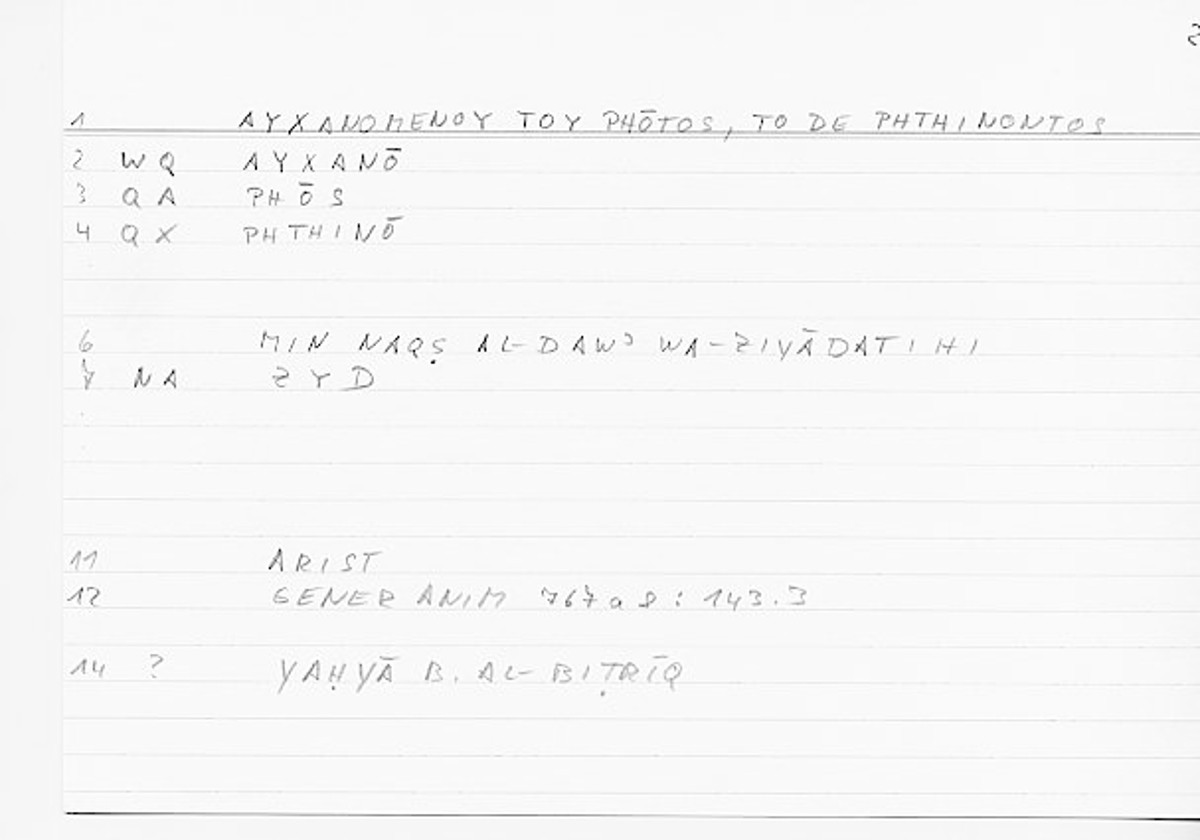 2
1 AYXANOMENOY TOY PHŌTOS, TO DE PHTHINONTOS
2 WQ AYXANŌ
3 QA PHŌS
4 QX PHTHINŌ
6 MIN NAQṢ AL-DAWʾ WA-ZIYĀDATIHI
7 NA ZYD
11 ARIST
12 GENER ANIM 767a8 : 143.3
14 ? YAḤYĀ B. AL-BIṬRĪQ